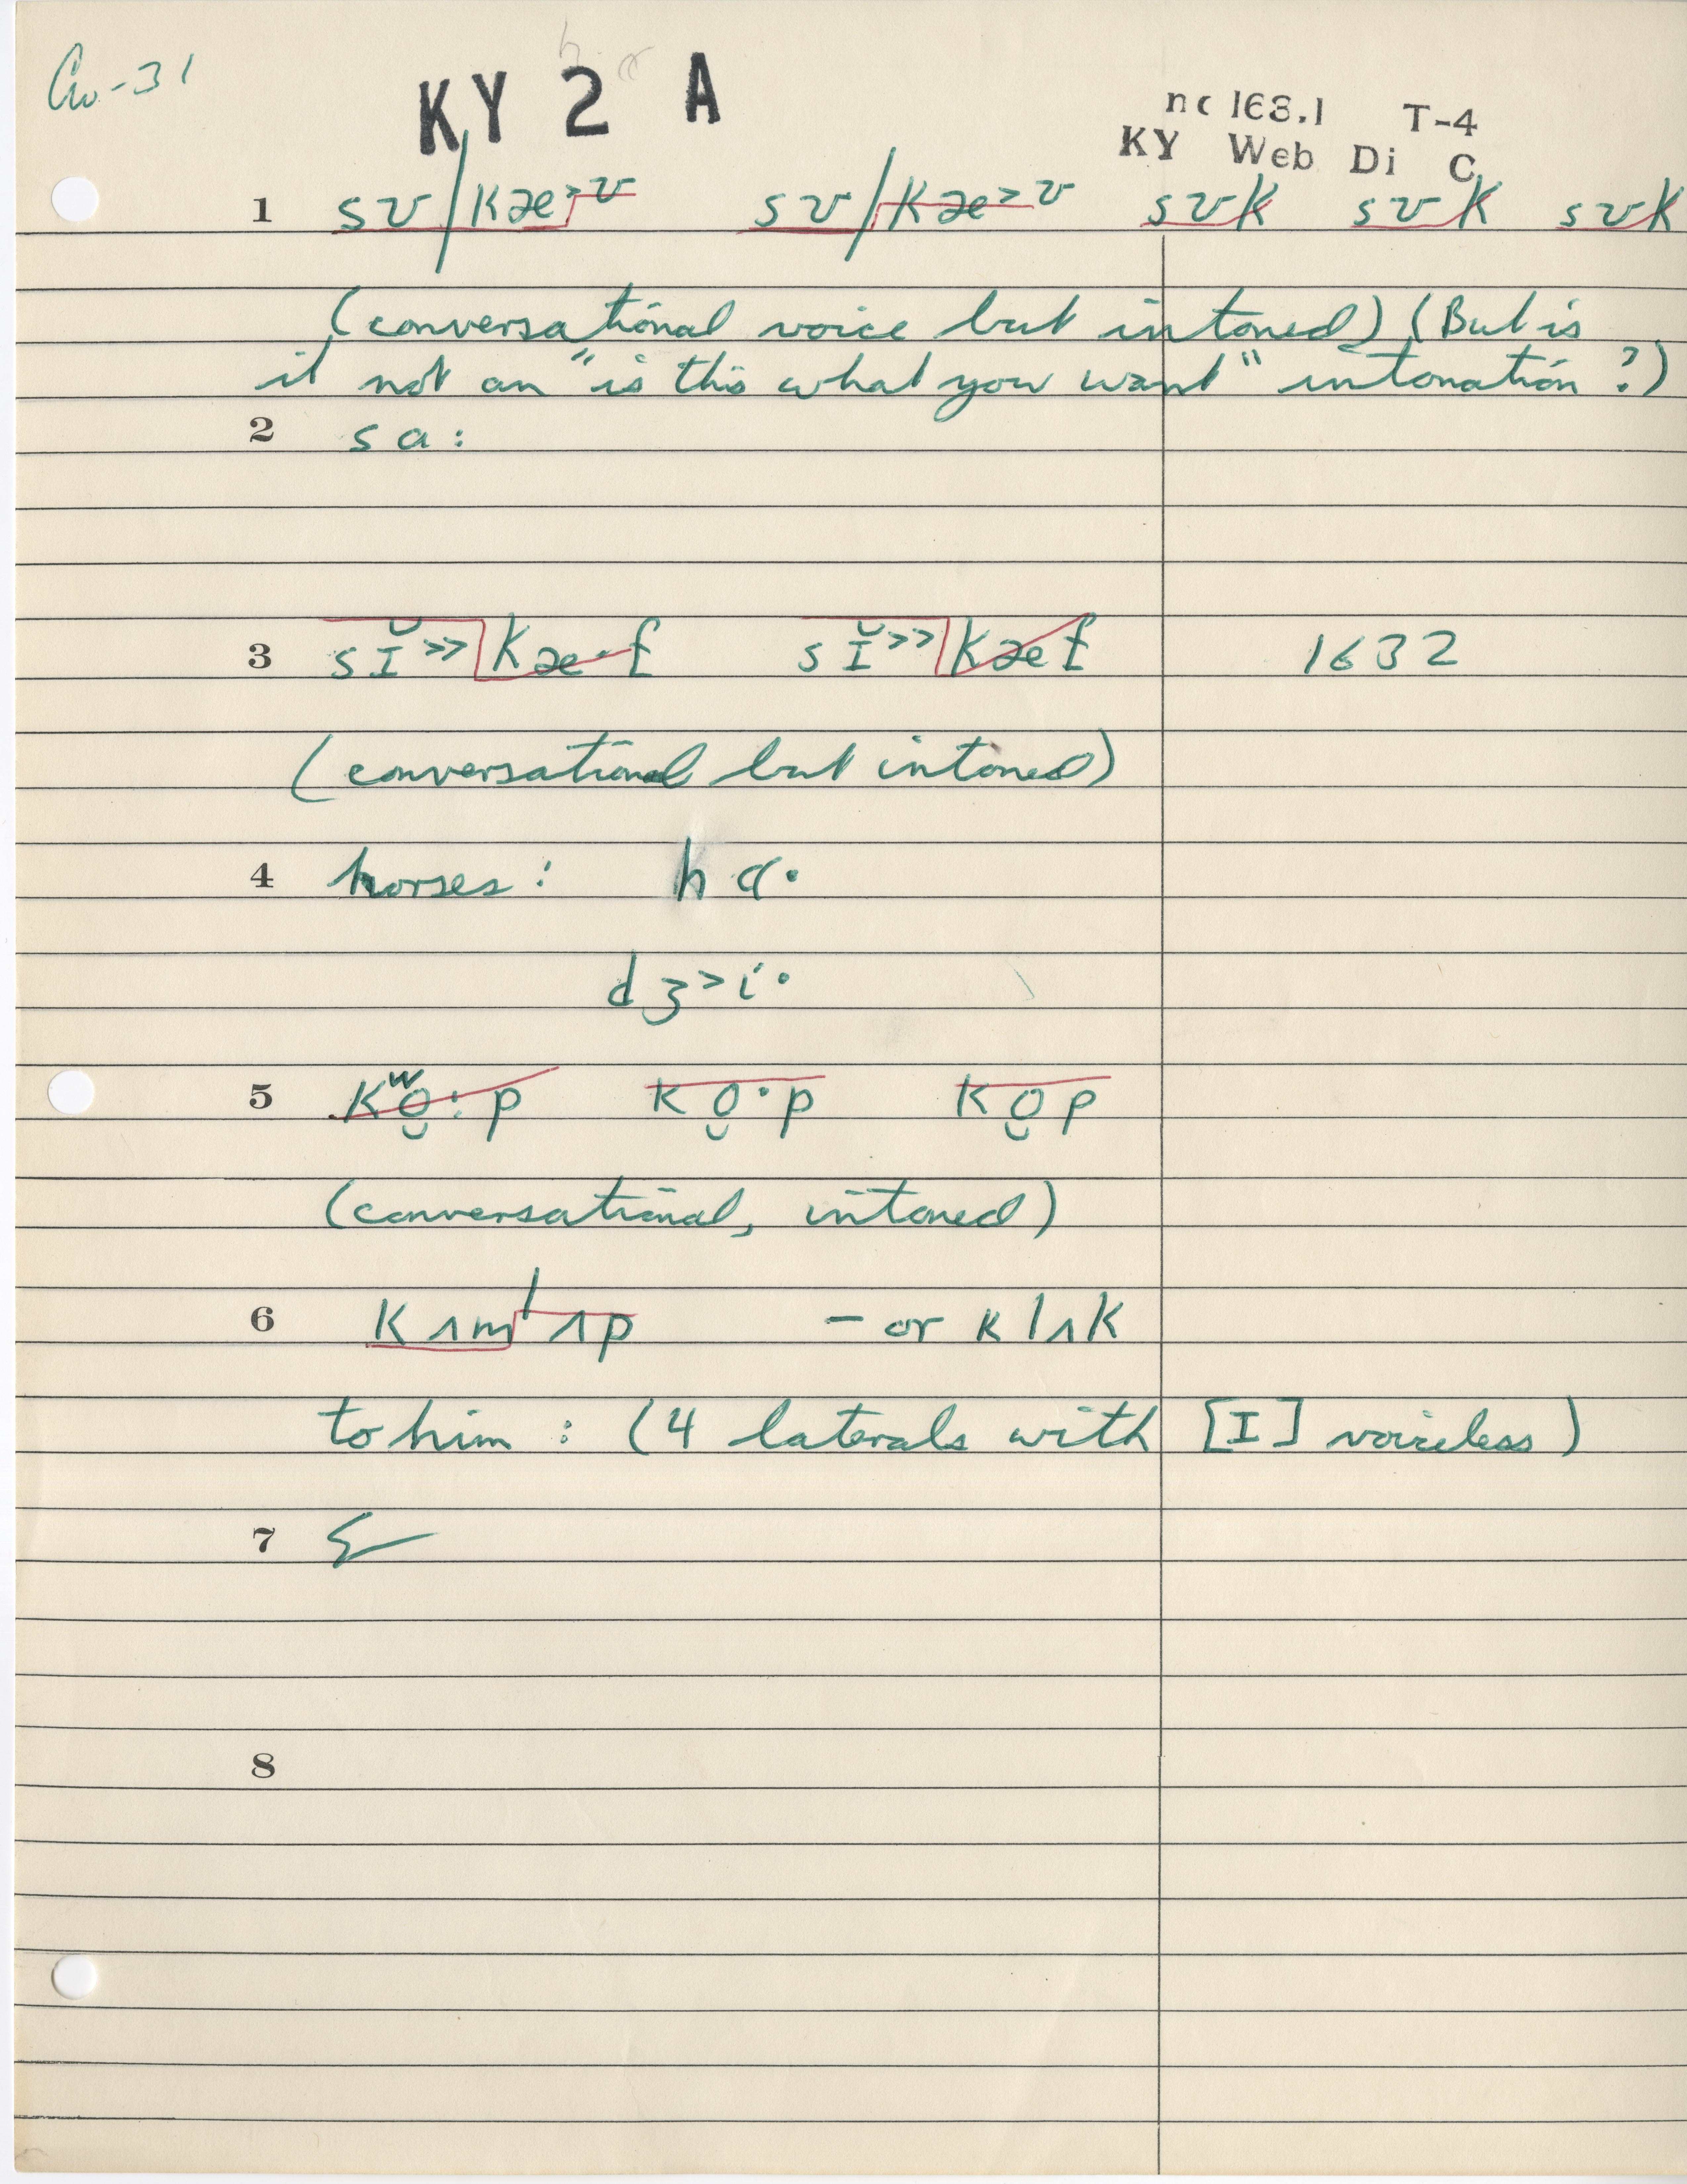 Cw-31
KY 2 A
nc 168.1 T-4
KY Web Di C
1 sʊ/kæ>ʊ sʊ/kæ>ʊ sʊk sʊk sʊk
(conversational voice but intoned) (But is
it not an "is this what you want" intonation?)
2 sa:
3 sɪ̆>>kæ·f sɪ̆>>kæf 1632
(conversational but intoned)
4 horses: hɑ·
dʒ>i·
5 kʷo̯:p ko̯·p ko̯p
(conversational, intoned)
6 kʌm/ʌp – or klʌk
to him: (4 laterals with [I] voiceless)
7
8